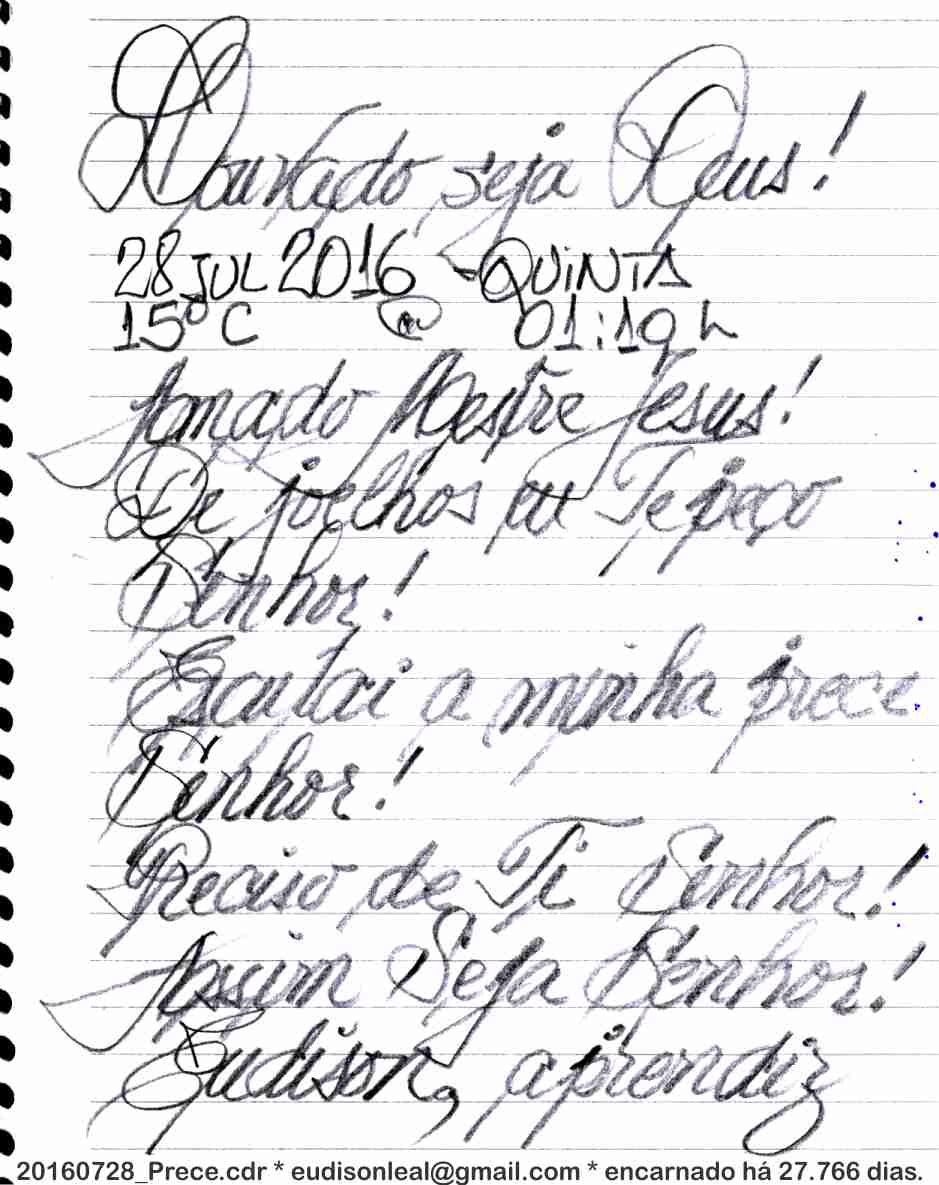 Louvado seja Deus!
28 JUL 2016 - QUINTA
15º C @ 01:19 h
Amado Mestre Jesus!
De joelhos eu Te peço
Senhor!
Escutai a minha prece
Senhor!
Preciso de Ti Senhor!
Assim Seja Senhor!
Eudison, aprendiz
20160728_Prece.cdr * eudisonleal@gmail.com * encarnado há 27.766 dias.